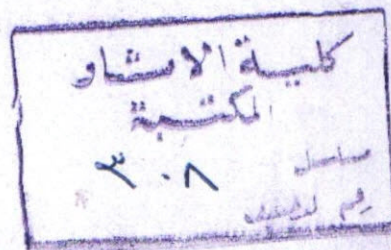 كلية الارشاد
المكتبة
مسلسل ٣٠٨
رقم التصنيف